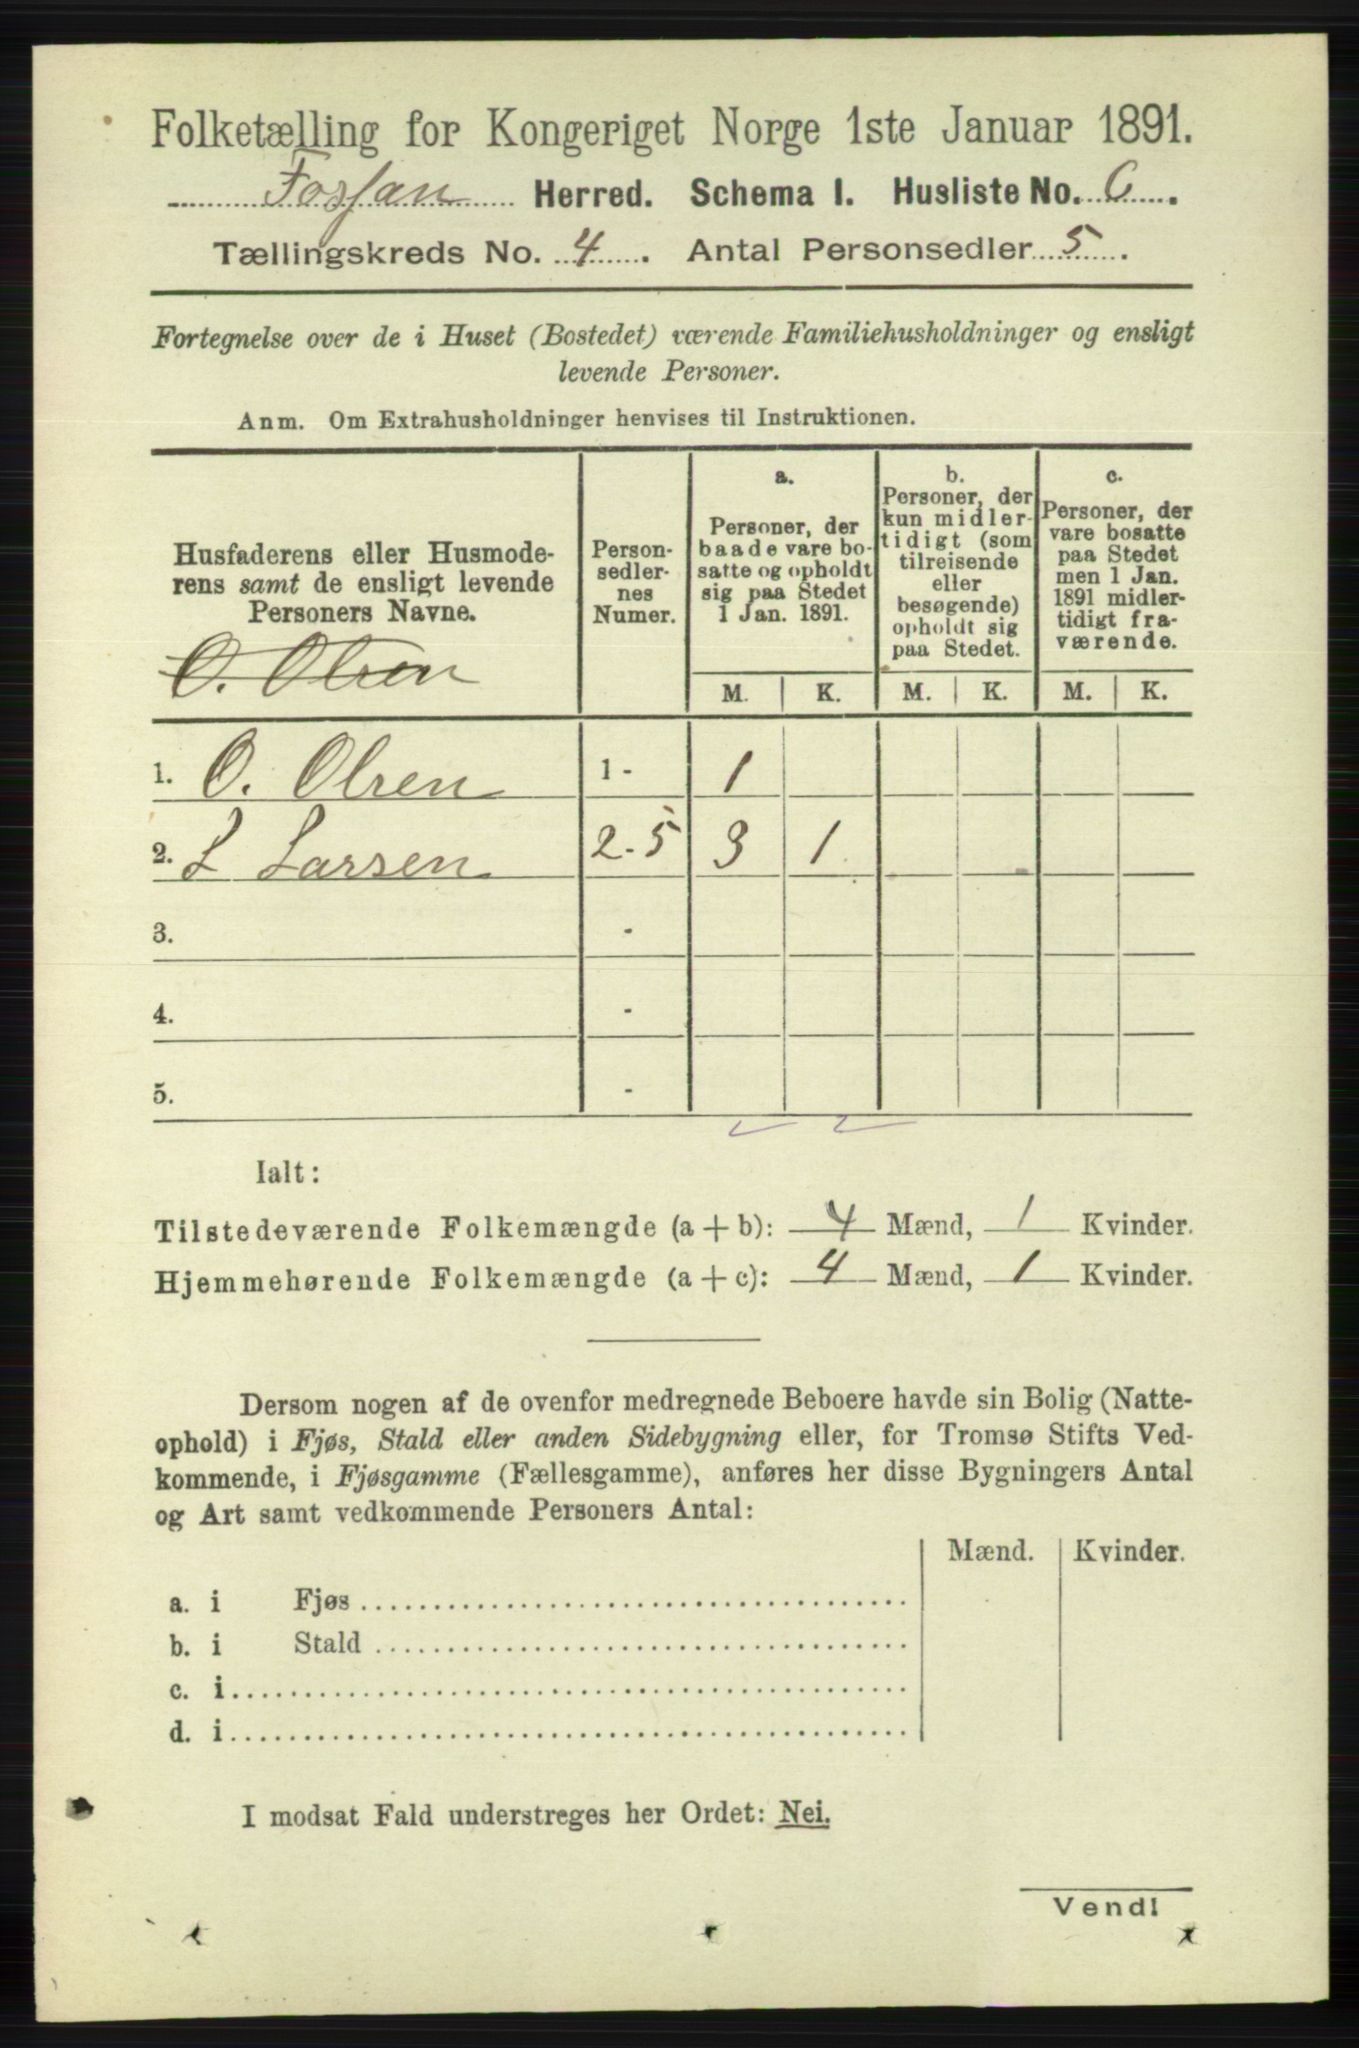 Folketælling for Kongeriget Norge 1ste Januar 1891.
Fossan Herred. Schema I. Husliste No. 6.
Tællingskreds No. 4. Antal Personsedler 5.
Fortegnelse over de i Huset (Bostedet) værende Familiehusholdninger og ensligt
levende Personer.
Anm. Om Extrahusholdninger henvises til Instruktionen.
Husfaderens eller Husmode-
rens samt de ensligt levende
Personers Navne.
O. Olsen
Person-
sedler-
nes
Numer.
a.
Personer, der
baade vare bo-
satte og opholdt
sig paa Stedet
1 Jan. 1891.
b.
Personer, der
kun midler-
tidigt (som
tilreisende
eller
besøgende)
opholdt sig
paa Stedet.
c.
Personer, der
vare bosatte
paa Stedet
men 1 Jan.
1891 midler-
tidigt fra-
værende.
M. K. M. K. M. K.
1. O. Olsen 1 - 1
2. L Larsen 2-5 3 1
3. -
4. -
5. -
Ialt:
Tilstedeværende Folkemængde (a + b): 4 Mænd, 1 Kvinder.
Hjemmehørende Folkemængde (a + c): 4 Mænd, 1 Kvinder.
Dersom nogen af de ovenfor medregnede Beboere havde sin Bolig (Natte-
ophold) i Fjøs, Stald eller anden Sidebygning eller, for Tromsø Stifts Ved-
kommende, i Fjøsgamme (Fællesgamme), anføres her disse Bygningers Antal
og Art samt vedkommende Personers Antal:
Mænd. Kvinder.
a. i Fjøs
b. i Stald
c. i
d. i
I modsat Fald understreges her Ordet: Nei.
Vend!